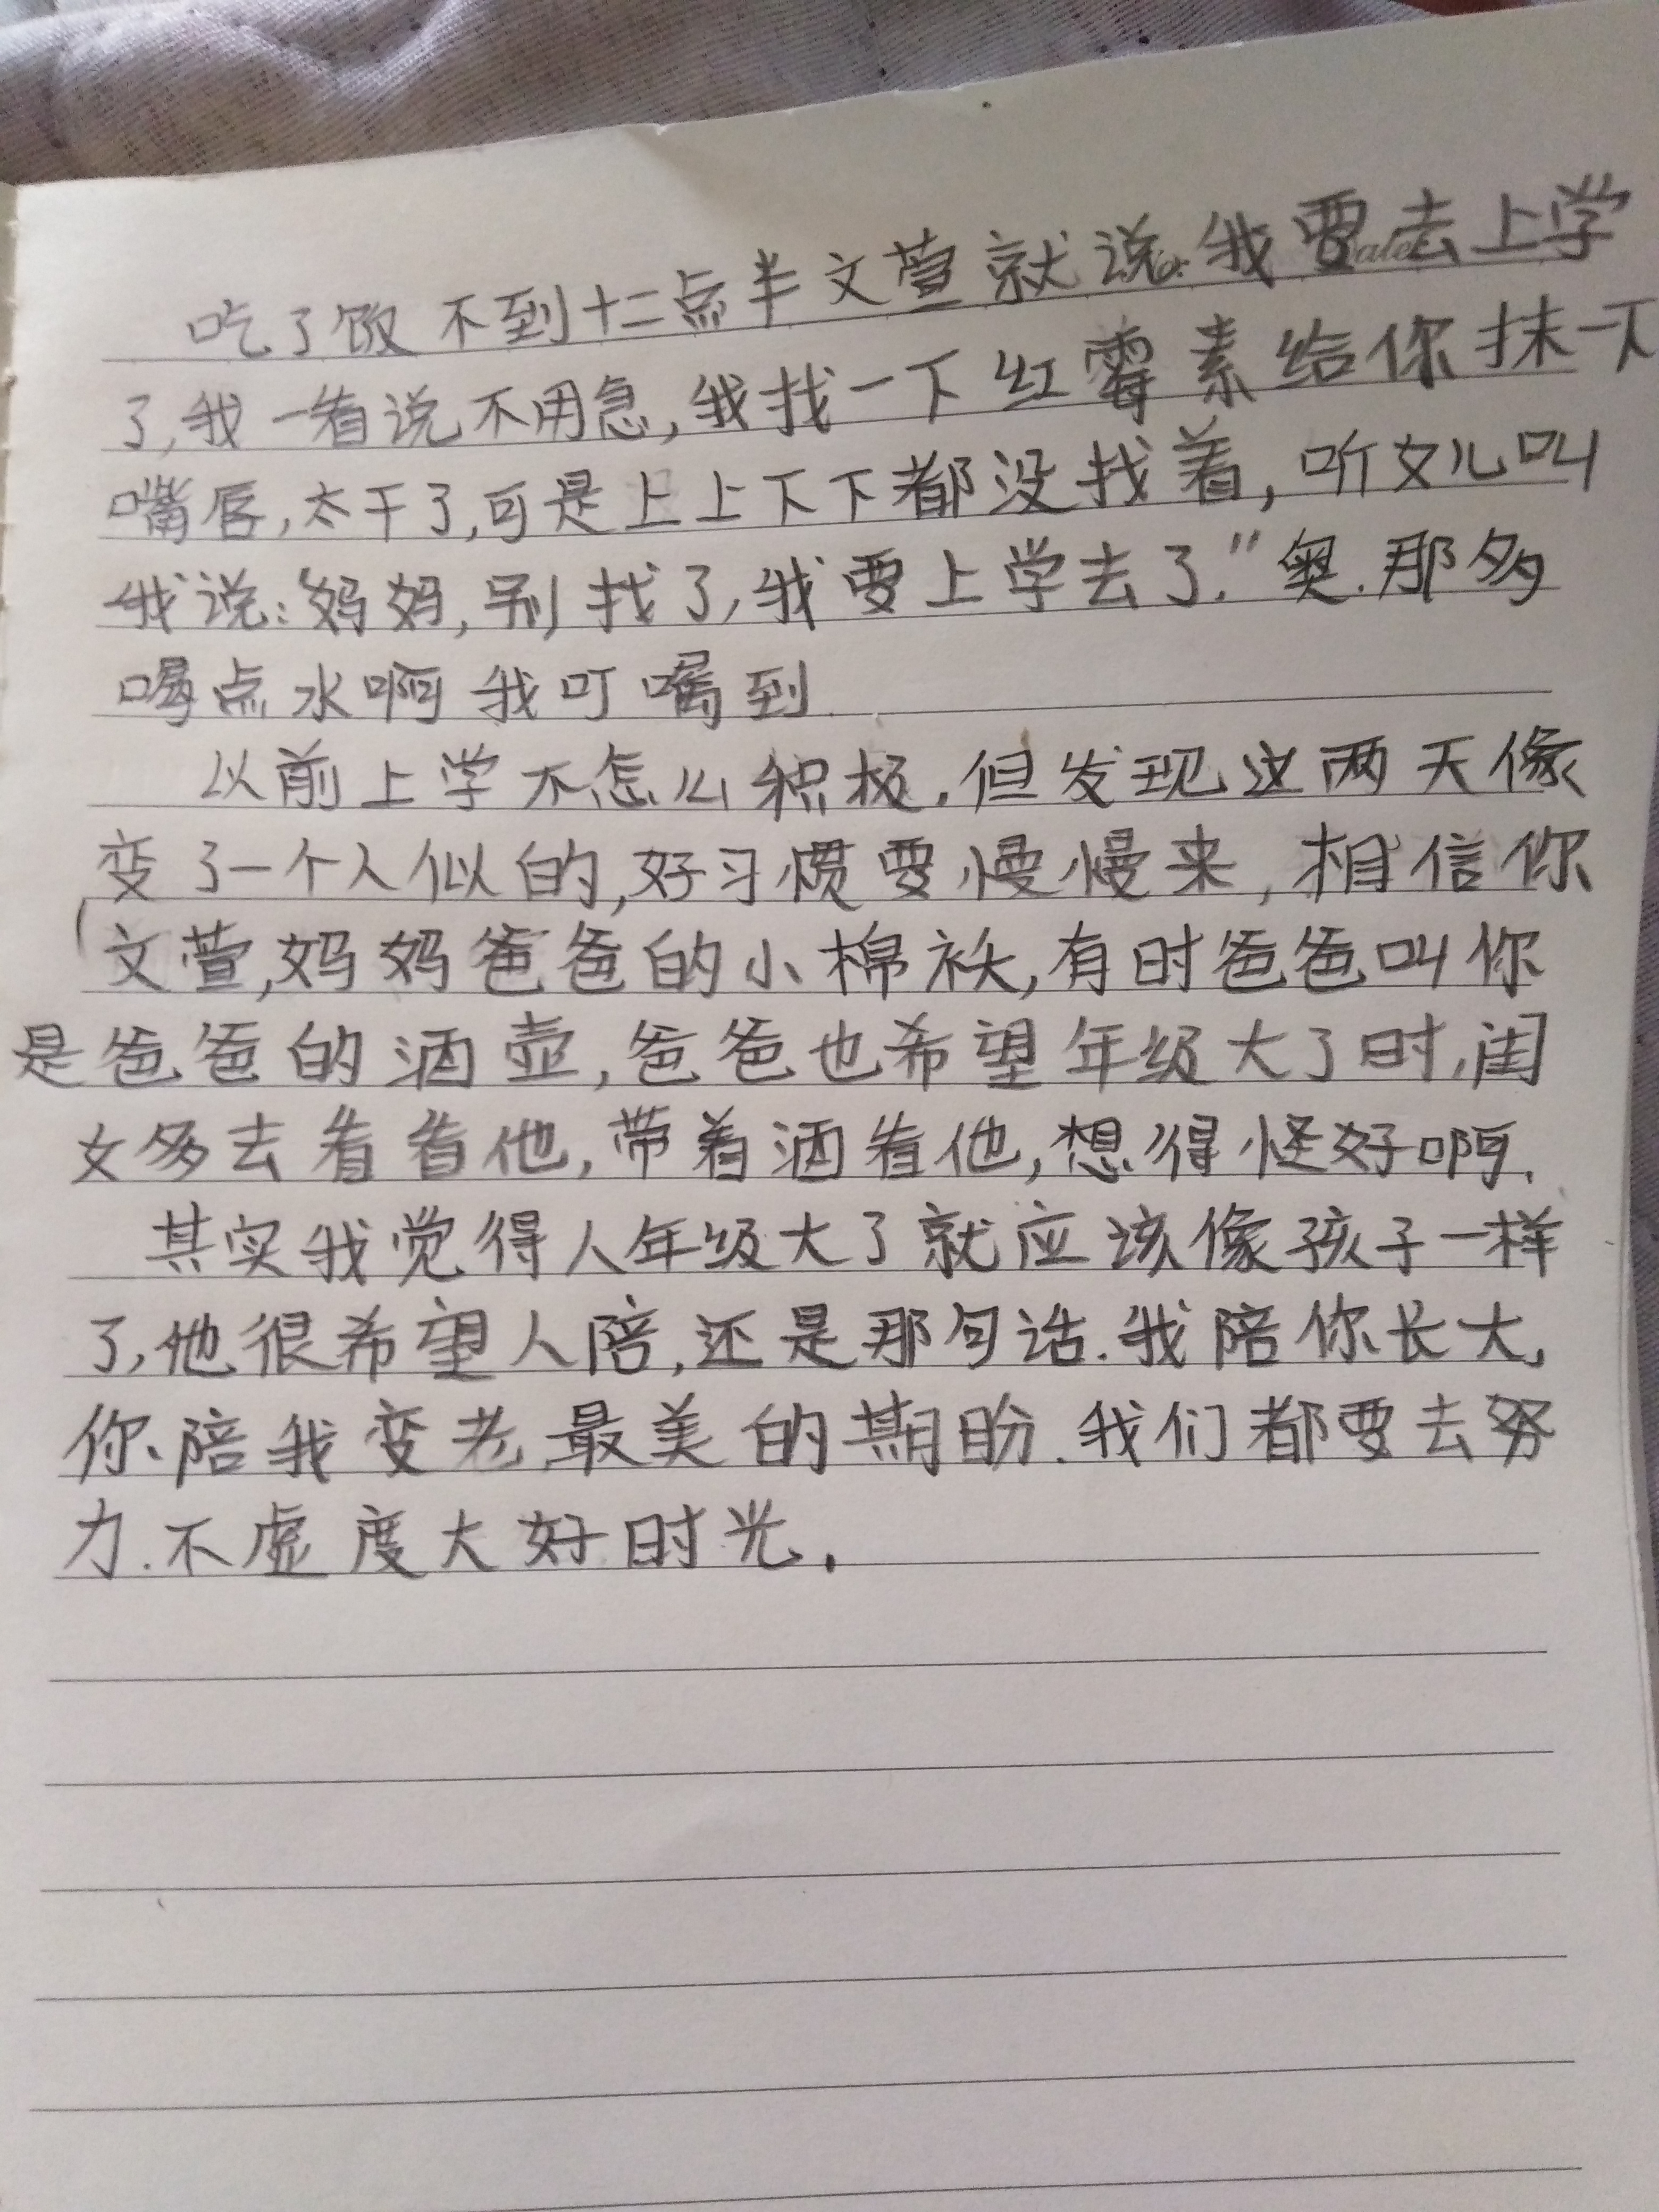 吃了饭不到十二点半文萱就说我要去上学
了,我一看说不用急,我找一下红霉素给你抹一下
嘴唇,太干了,可是上上下下都没找着,听女儿叫
我说:"妈妈,别找了,我要上学去了."奥.那多
喝点水啊我叮嘱到
以前上学不怎么积极.但发现这两天像
变了一个人似的,好习惯要慢慢来,相信你
(文萱,妈妈爸爸的小棉袄,有时爸爸叫你
是爸爸的酒壶,爸爸也希望年级大了时,闺
女多去看看他,带着酒看他,想得怪好啊.
其实我觉得人年级大了就应该像孩子一样
了,他很希望人陪,还是那句话.我陪你长大,
你陪我变老.最美的期盼.我们都要去努
力.不虚度大好时光.